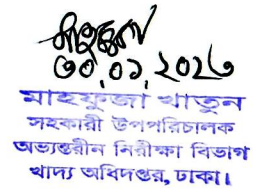 মাহফুজা
৩০.০১.২০২৩
মাহফুজা খাতুন
সহকারী উপপরিচালক
অভ্যন্তরীন নিরীক্ষা বিভাগ
খাদ্য অধিদপ্তর, ঢাকা।